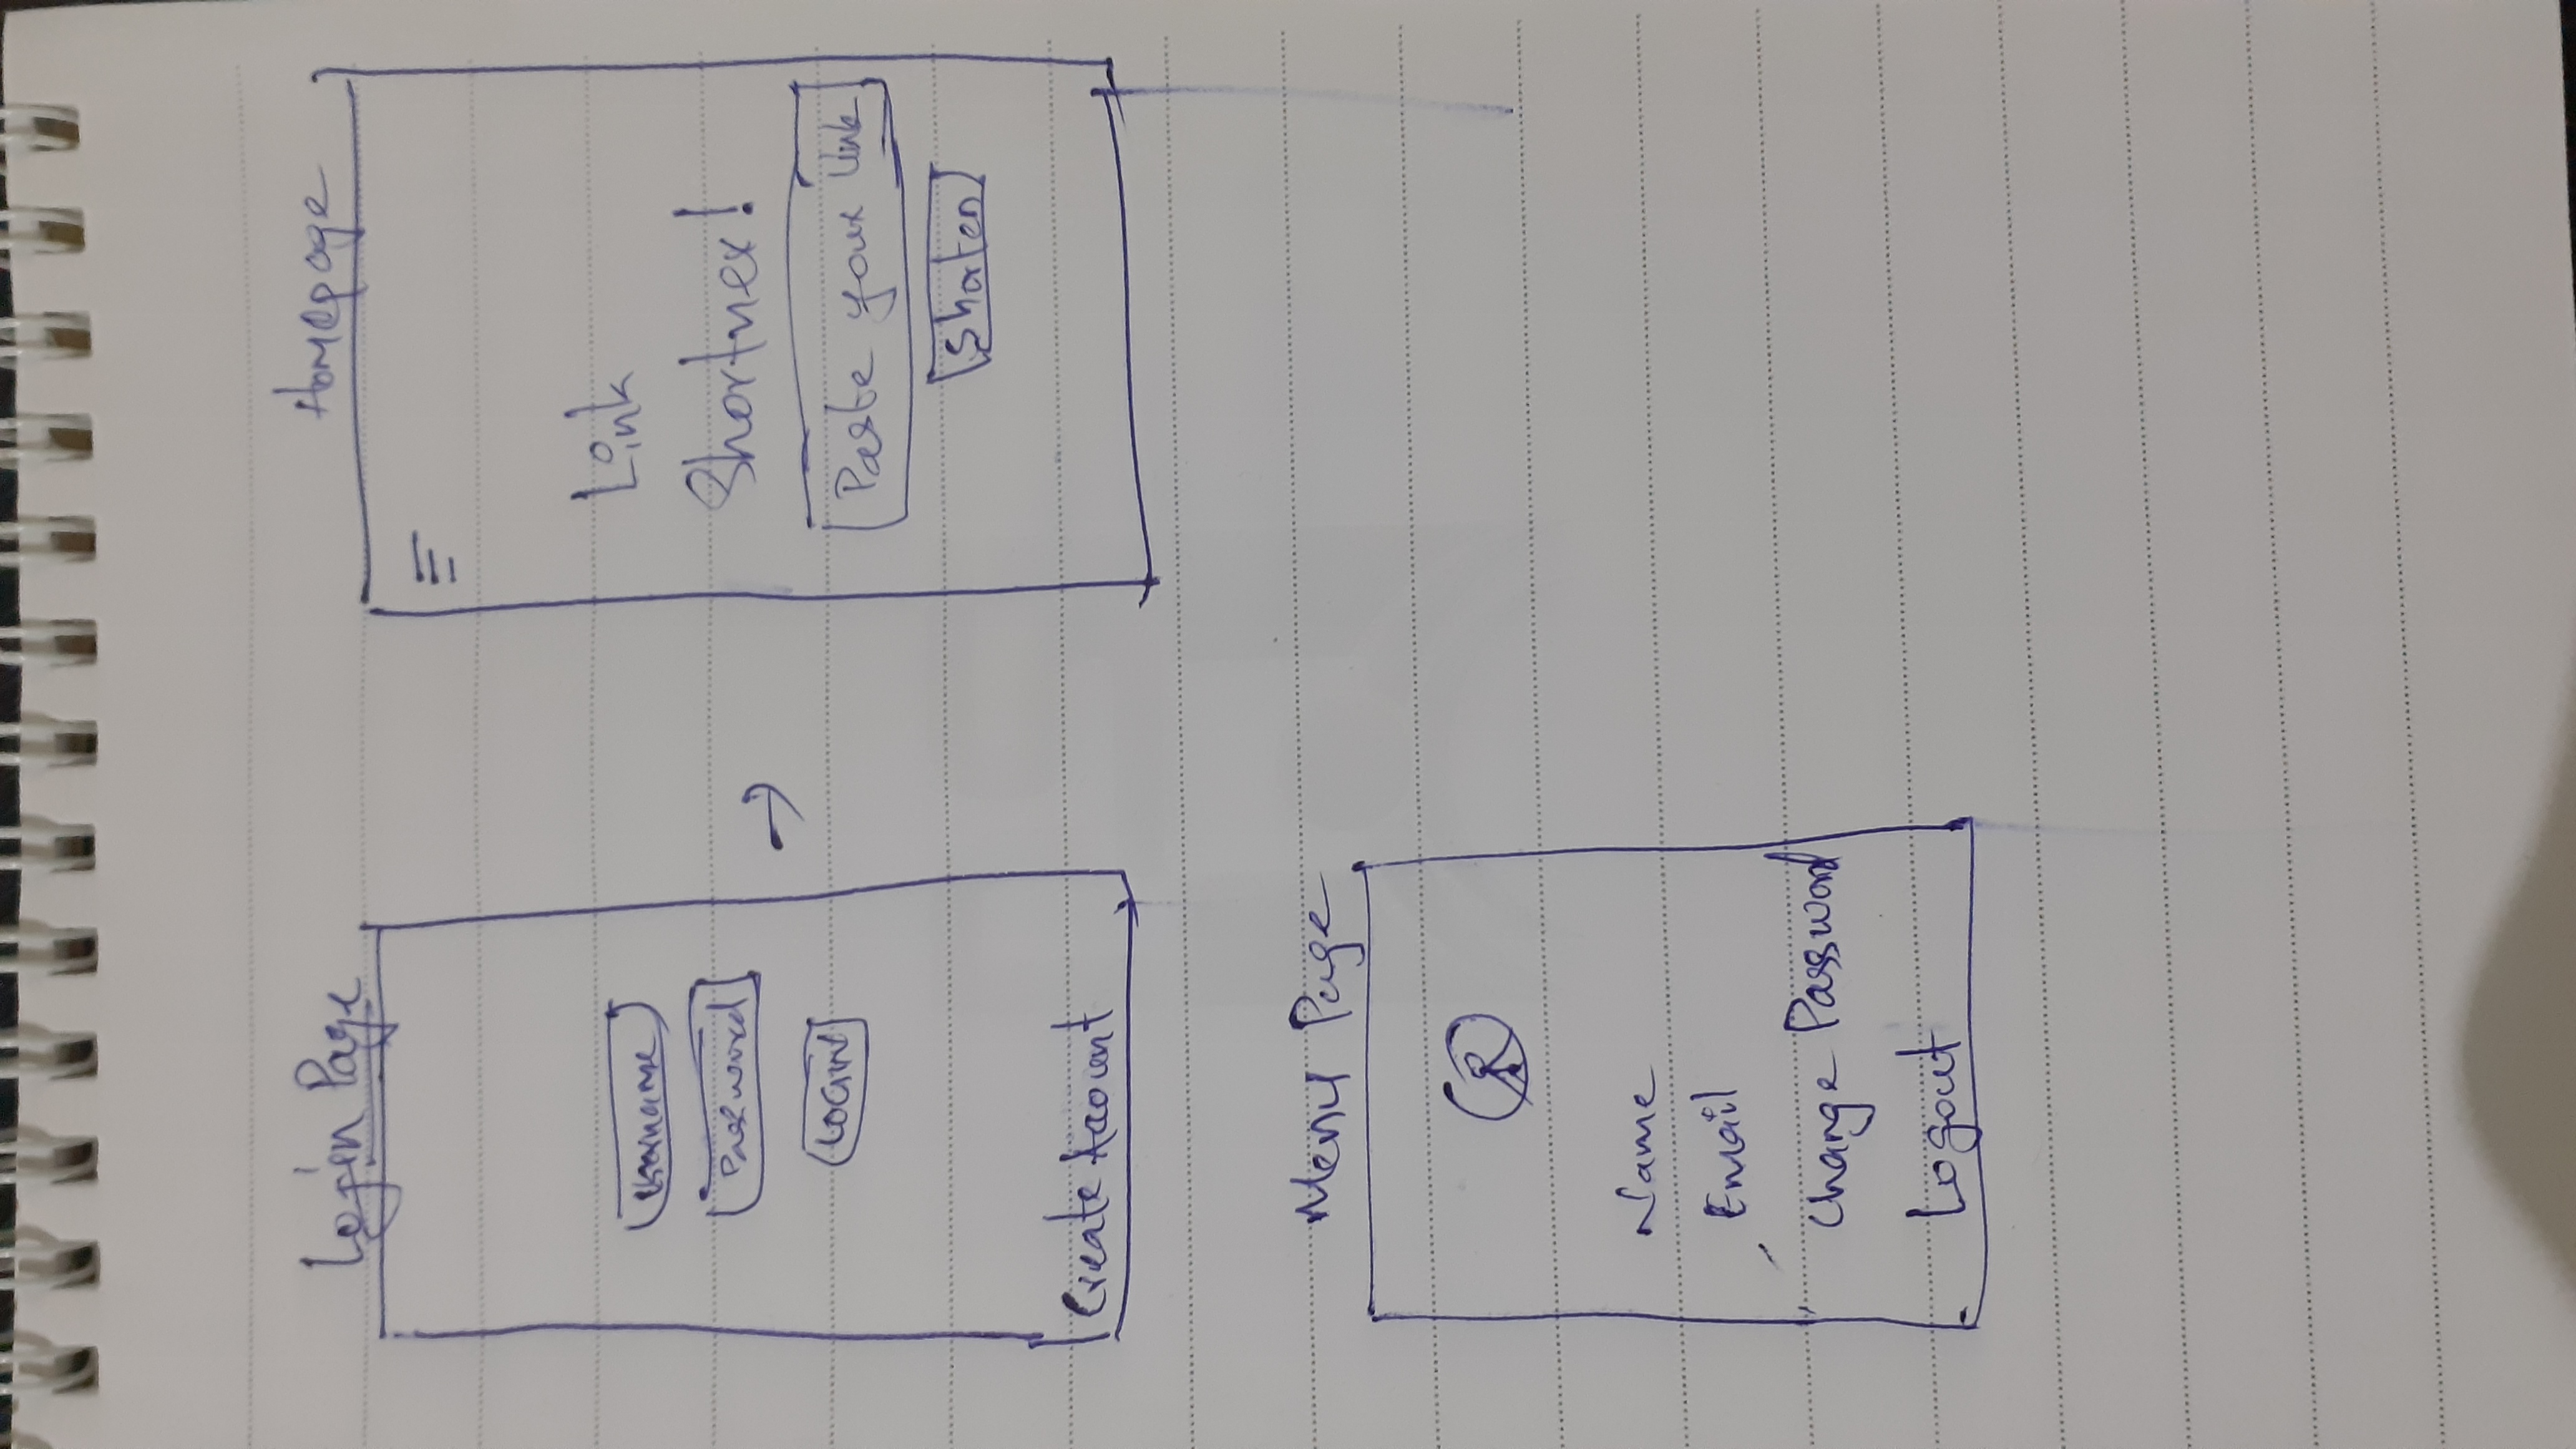 Login Page
Username
Password
LOGIN
Create Account
Homepage
Link
Shortner!
Paste your link
Shorten
Menu Page
Name
Email
Change Password
Logout